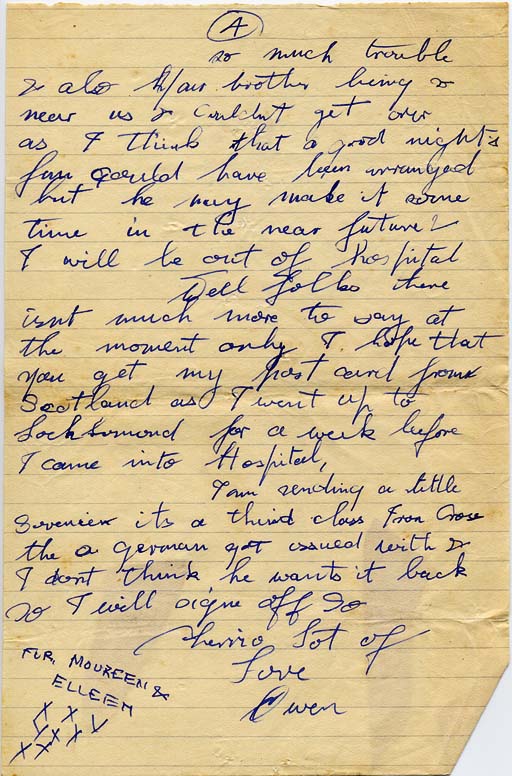 4
so much trouble
& also your brother being so
near us & couldnt get over
as I think that a good night's
fun could have been arranged
but he may make it some
time in the near future &
I will be out of Hospital
Well folks there
isnt much more to say at
the moment only I hope that
you get my post card from
Scotland as I went up to
Lochlomond for a week before
I came into Hospital,
I am sending a little
Sovenier its a third class Iron Cross
the a german got issued with &
I dont think he wants it back
so I will signe off so
Cherrio Lot of
Love
Owen
FUR. MOUREEN &
ELLEEM
X X
X X X
X X X X